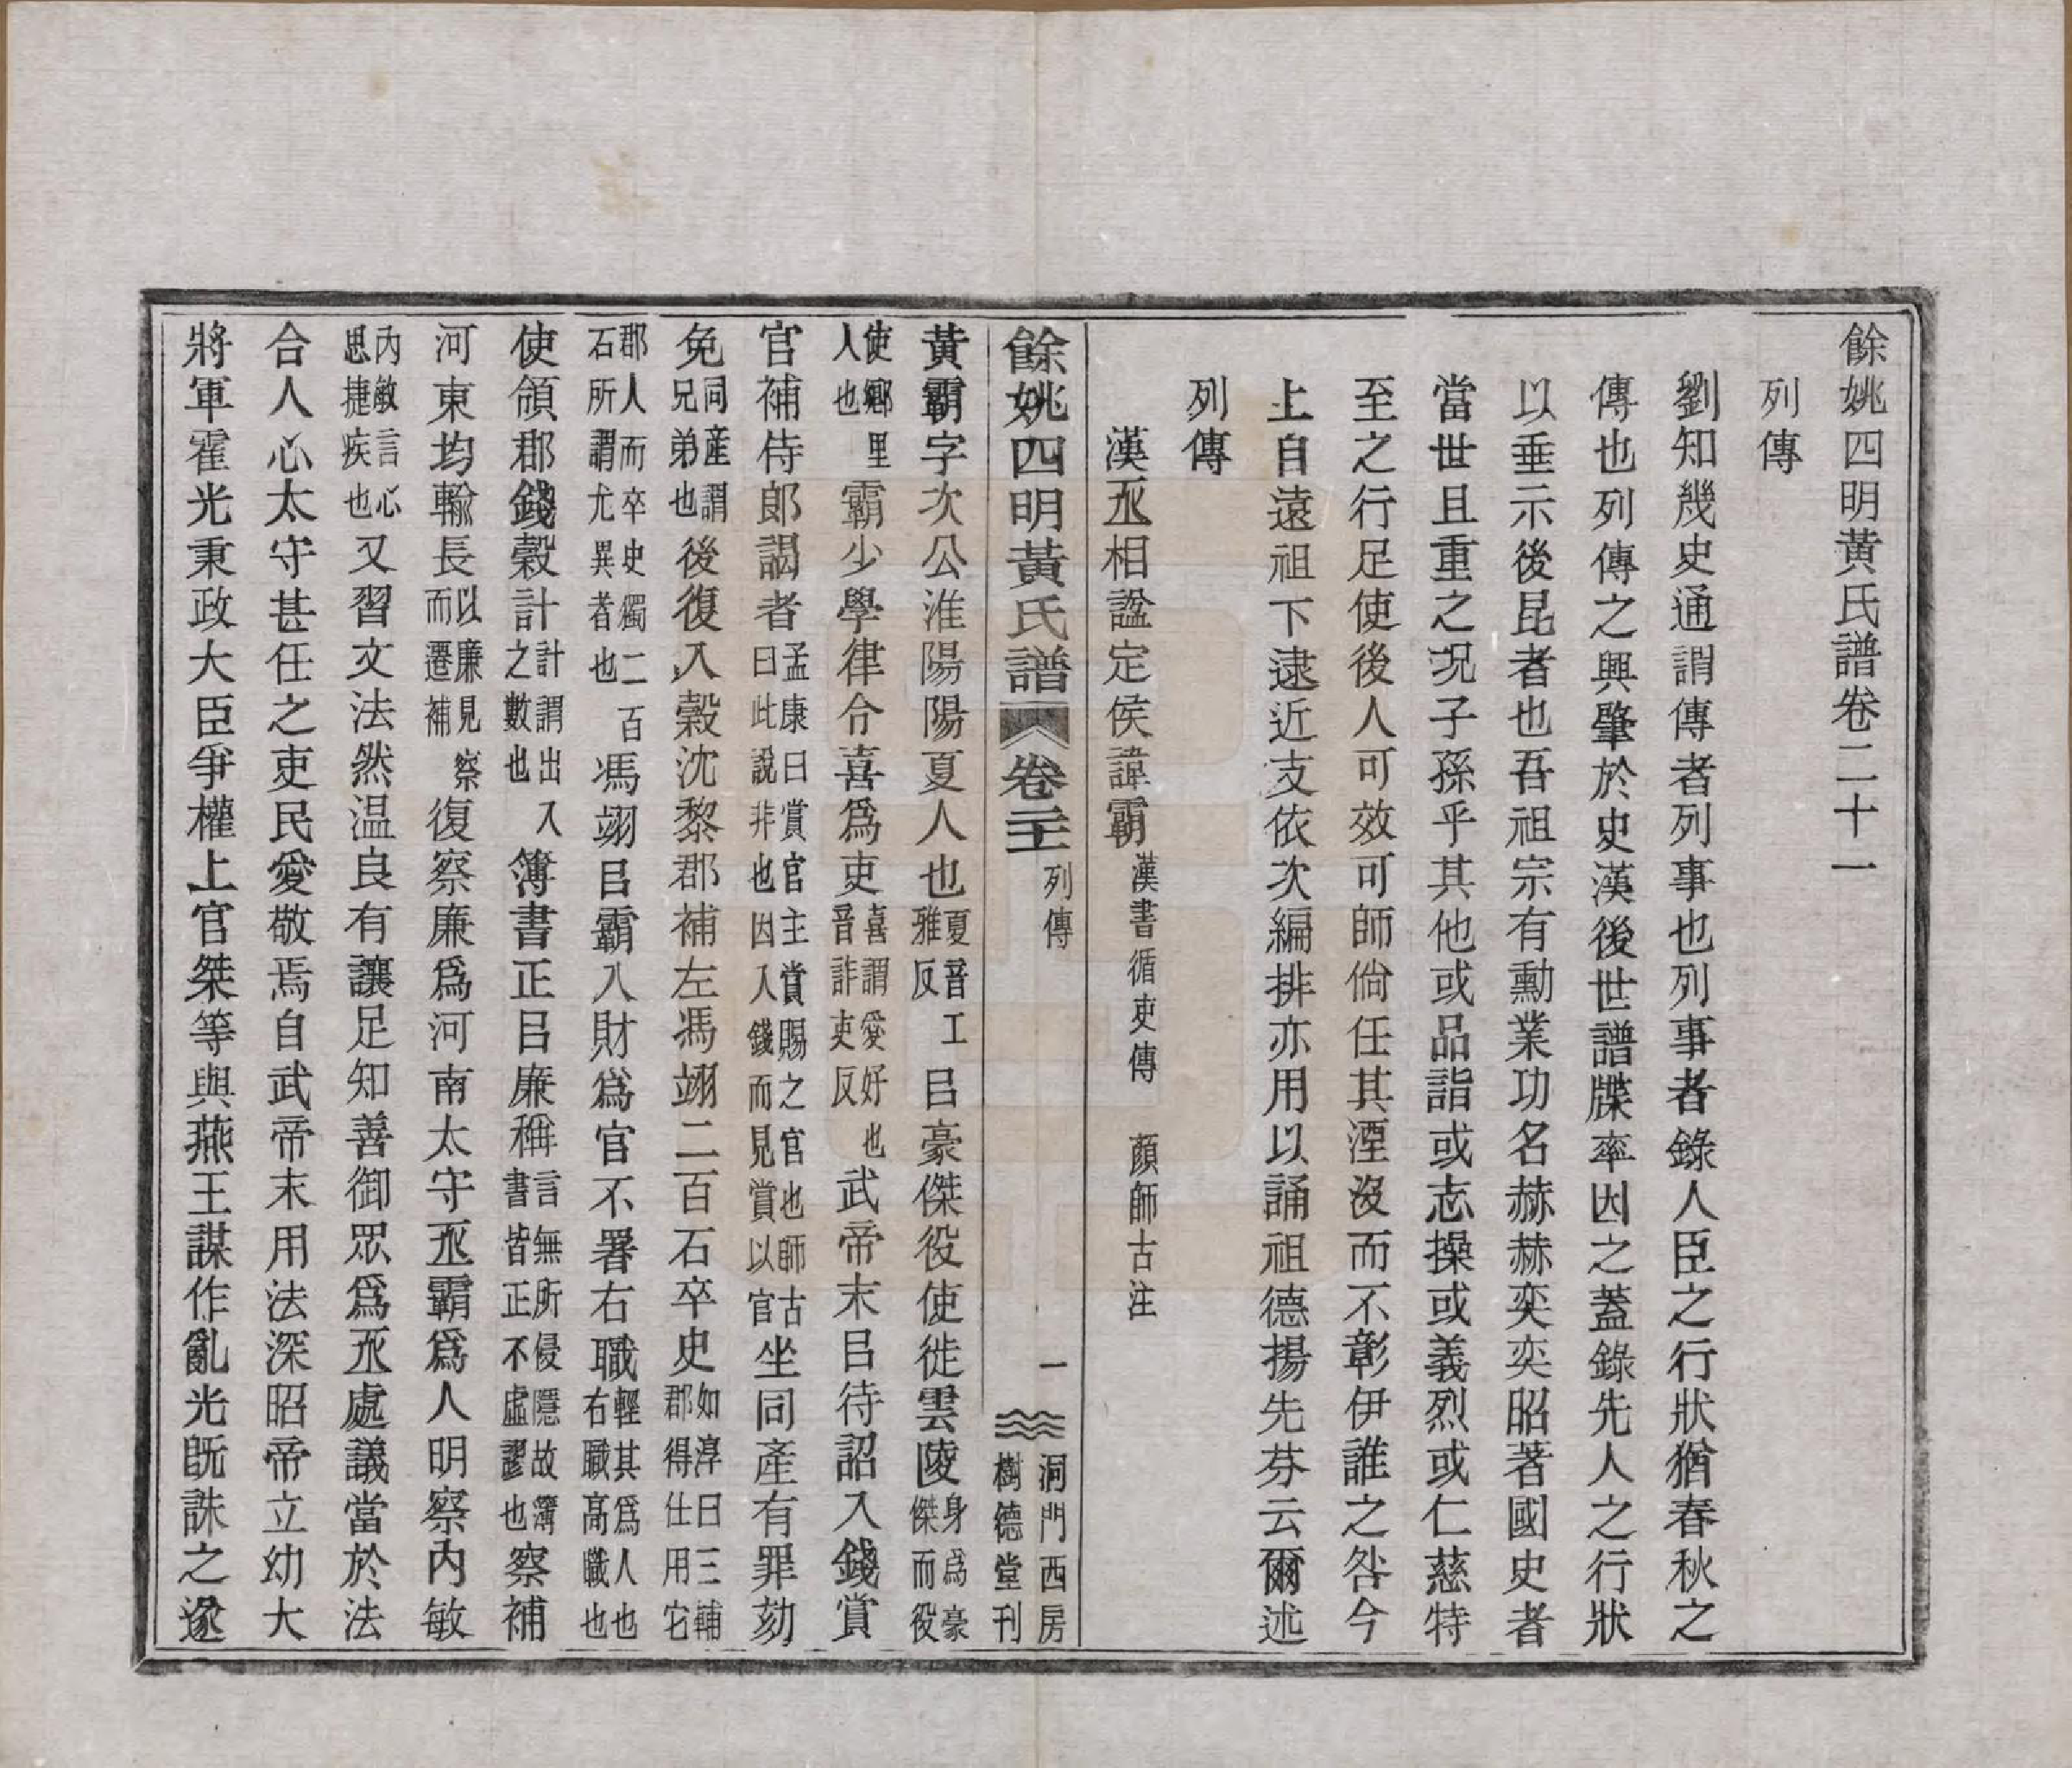 餘姚四明黃氏譜卷二十一
列傳
劉知幾史通謂傳者列事也列事者錄人臣之行狀猶春秋之
傳也列傳之興肇於史漢後世譜牒率因之蓋錄先人之行狀
以垂示後昆者也吾祖宗有勳業功名赫赫奕奕昭著國史者
當世且重之況子孫乎其他或品詣或志操或義烈或仁慈特
至之行足使後人可效可師倘任其湮沒而不彰伊誰之咎今
上自遠祖下逮近支依次編排亦用以誦祖德揚先芬云爾述
列傳
漢丞相諡定侯諱霸漢書循吏傳 顏師古注
餘姚四明黃氏譜 卷二十一 列傳 一 洞門西房 樹德堂刊
黃霸字次公淮陽陽夏人也夏音工雅反㠯豪傑役使徙雲陵身為豪傑而役
使鄉里人也霸少學律令喜為吏喜謂愛好也音許吏反武帝末㠯待詔入錢賞
官補侍郎謁者孟康曰賞官主賞賜之官也師古曰此說非也因入錢而見賞以官坐同產有罪劾
免同產謂兄弟也後復入穀沈黎郡補左馮翊二百石卒史如淳曰三輔郡得仕用它
郡人而卒史獨二百石所謂尤異者也馮翊㠯霸入財為官不署右職輕其為人也右職高職也
使領郡錢穀計計謂出入之數也簿書正㠯廉稱言無所侵隱故簿書皆正不虛謬也察補
河東均輸長以廉見察而遷補復察廉為河南太守丞霸為人明察內敏
內敏言心思捷疾也又習文法然溫良有讓足知善御眾為丞處議當於法
合人心太守甚任之吏民愛敬焉自武帝末用法深昭帝立幼大
將軍霍光秉政大臣爭權上官桀等與燕王謀作亂光既誅之遂